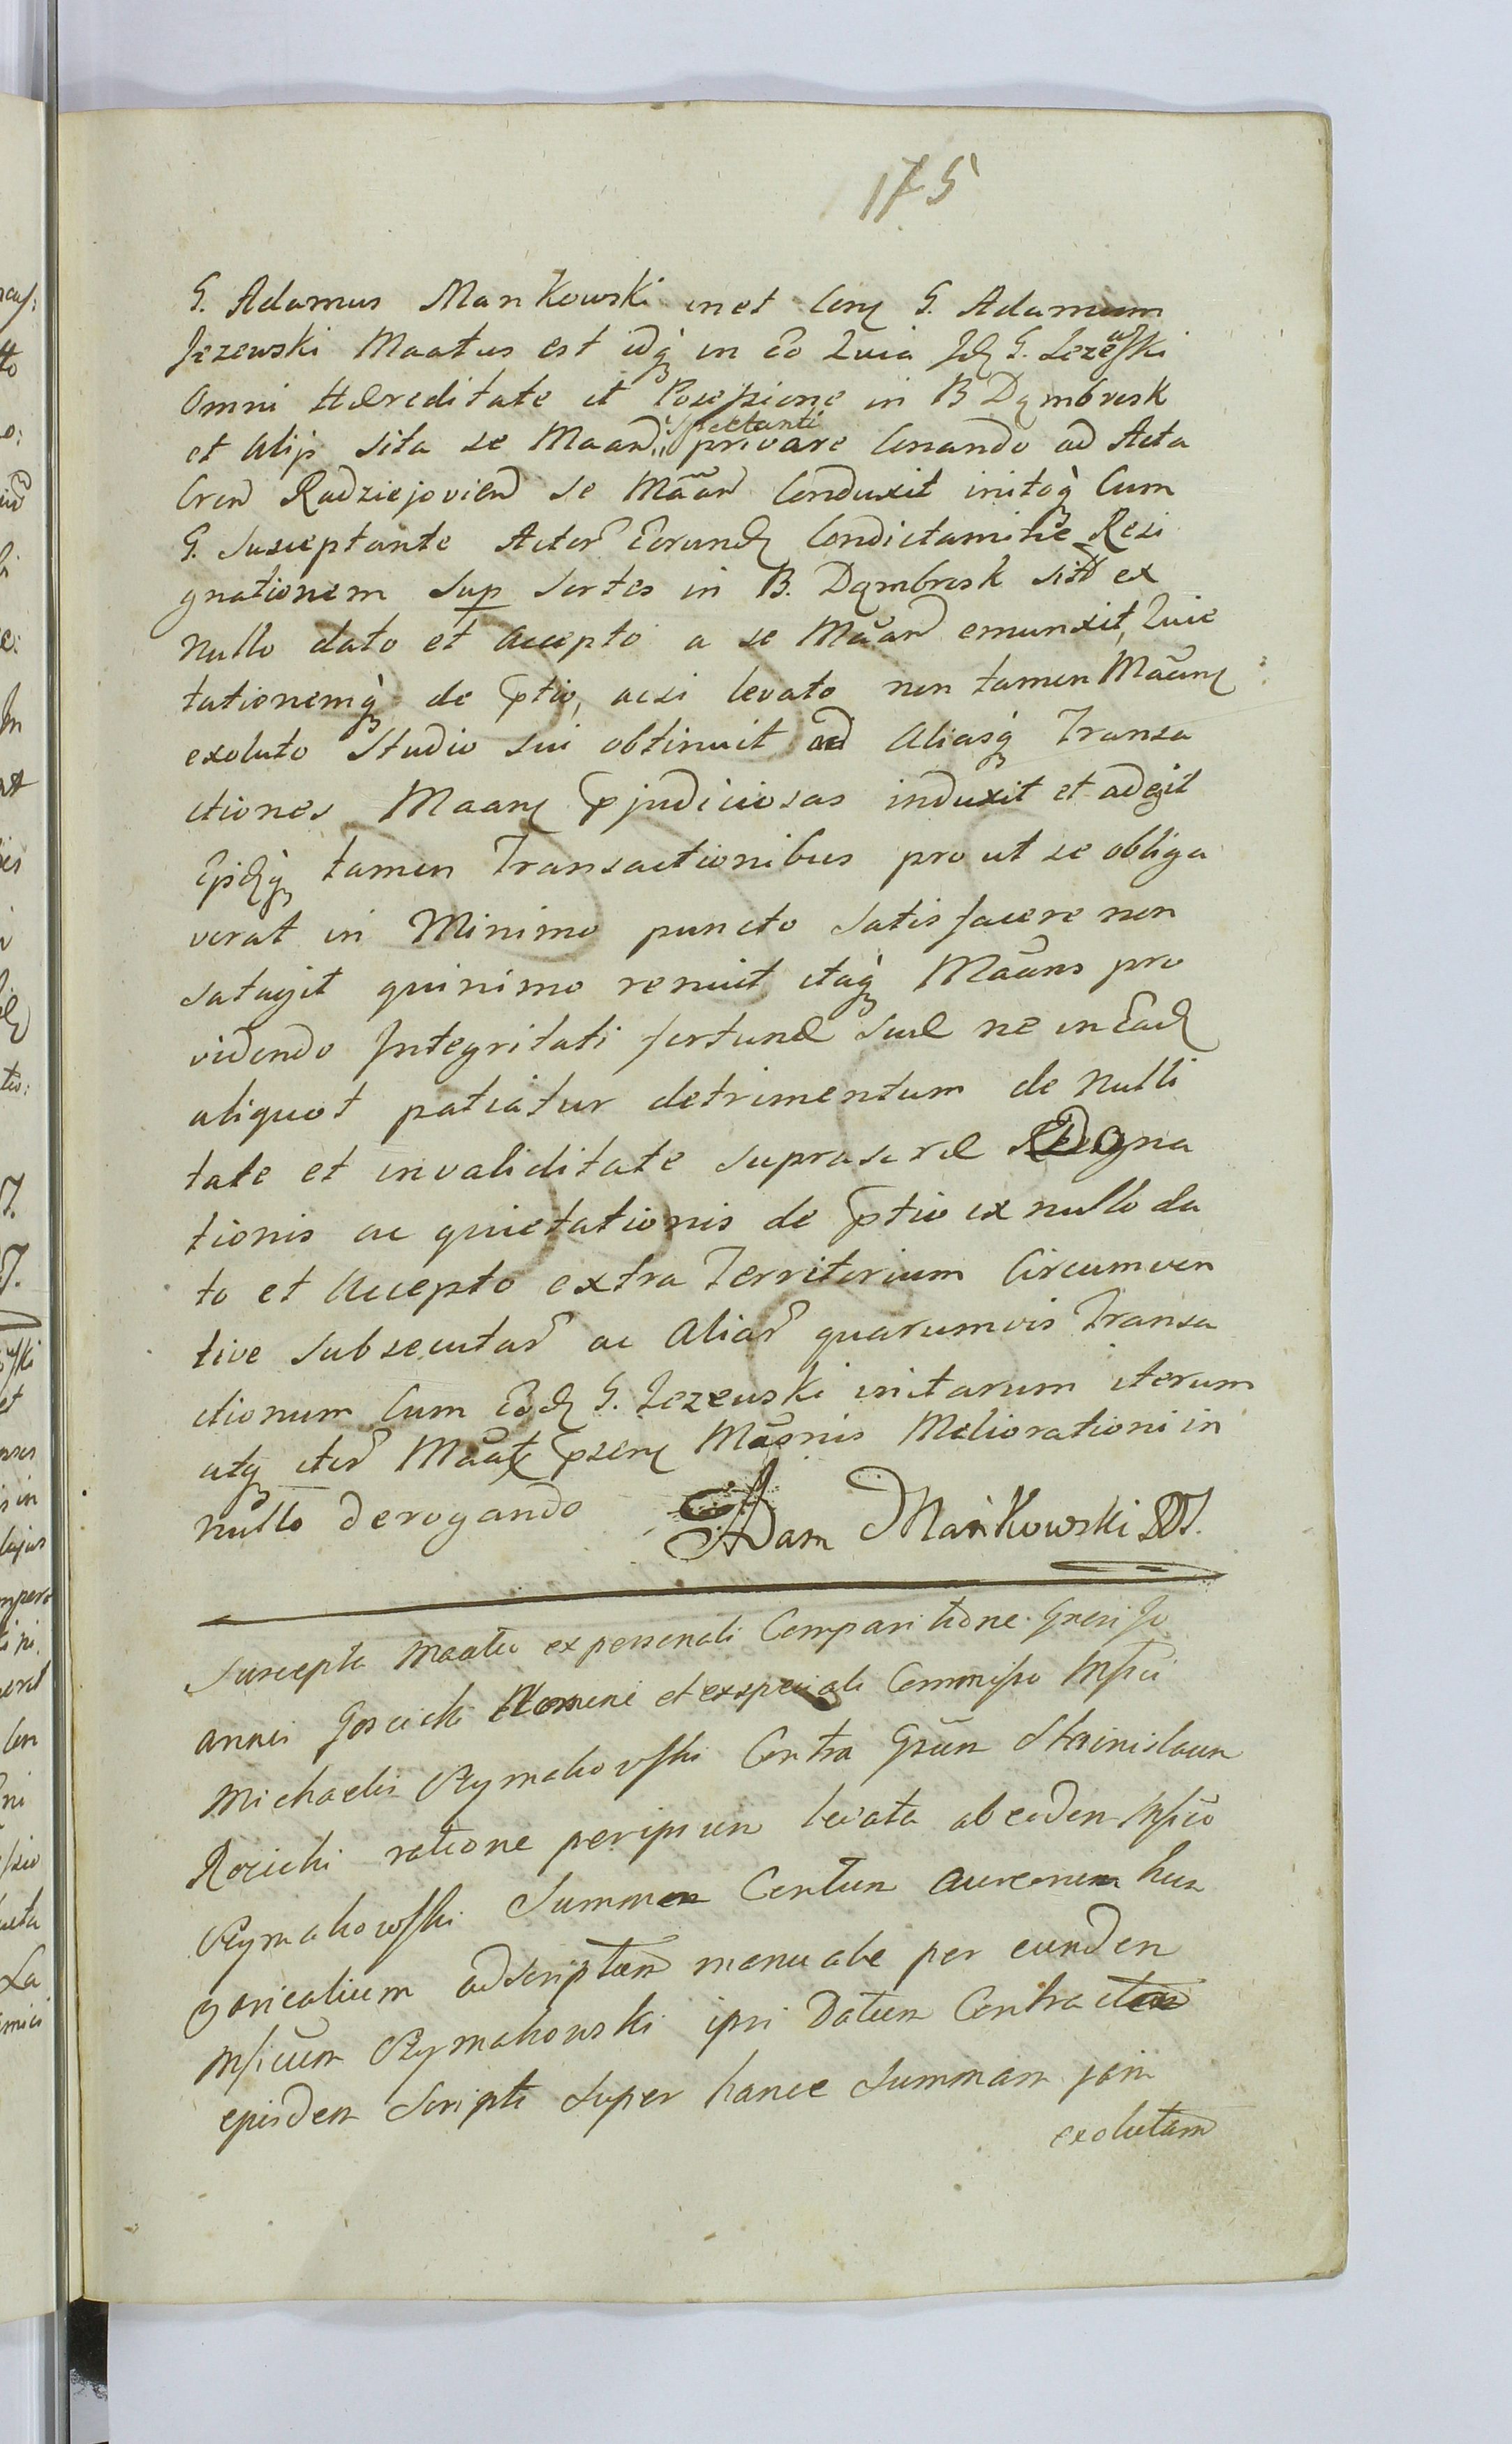 175
G. Adamus Mankowski in et Con G. Adamum
Jezewski Maatus est idq in Eo Quia Id G. Jezewski
Omni Hæreditate et Possessione in B Dąmbrosk
et Alijs sita se Maan spectanti privare Conando ad Acta
Cren Radziejovien se Mãan Conduxit initoq Cum
G. Susceptante Actor Eorund Condictamine Resi
gnationem Sup Sortes in B. Dąmbrosk sit ex
nullo dato et Accepto a se Mãan emunxit, Quie
tationemq de ptio, acsi levato non tamen Mãan
exoluto Studio sui obtinuit ad Aliasq Transa
ctiones Maan pjudiciosas induxit et adegit
Ejsdq tamen Transactionibus prout se obliga
verat in Minimo puncto satisfacere non
satagit quinimo renuit itaq Mãans pro
videndo Integritati fortunæ suæ ne in Ead
aliquot patiatur detrimentum de nulli
tate et invaliditate suprascræ Resigna
tionis ac quietationis de ptio ex nullo da
to et Accepto extra Territorium Circumven
tive subsecutar ac Aliar quarumvis Transa
ctionum Cum Eod G. Jezewski initarum iterum
atq iter Mãat psen Mãonis Meliorationi in
nullo derogando Adam Mańkowski
Suscepta Maatio ex personali Comparitione Gnesi Jo
annis Goscicki Nomine et ex speciali Commisso Msci
Michaelis Rymakowski Contra Gsum Stainislaum
Rocicki ratione per ipsum levata ab eodem Msco
Rymakowski Summa Centum aureorum hun
garicalium adscriptam manuale per eundem
Msicum Rymakowski ipsi Datum Contra
ejusdem Scripti super hance Summam jam
exolutam